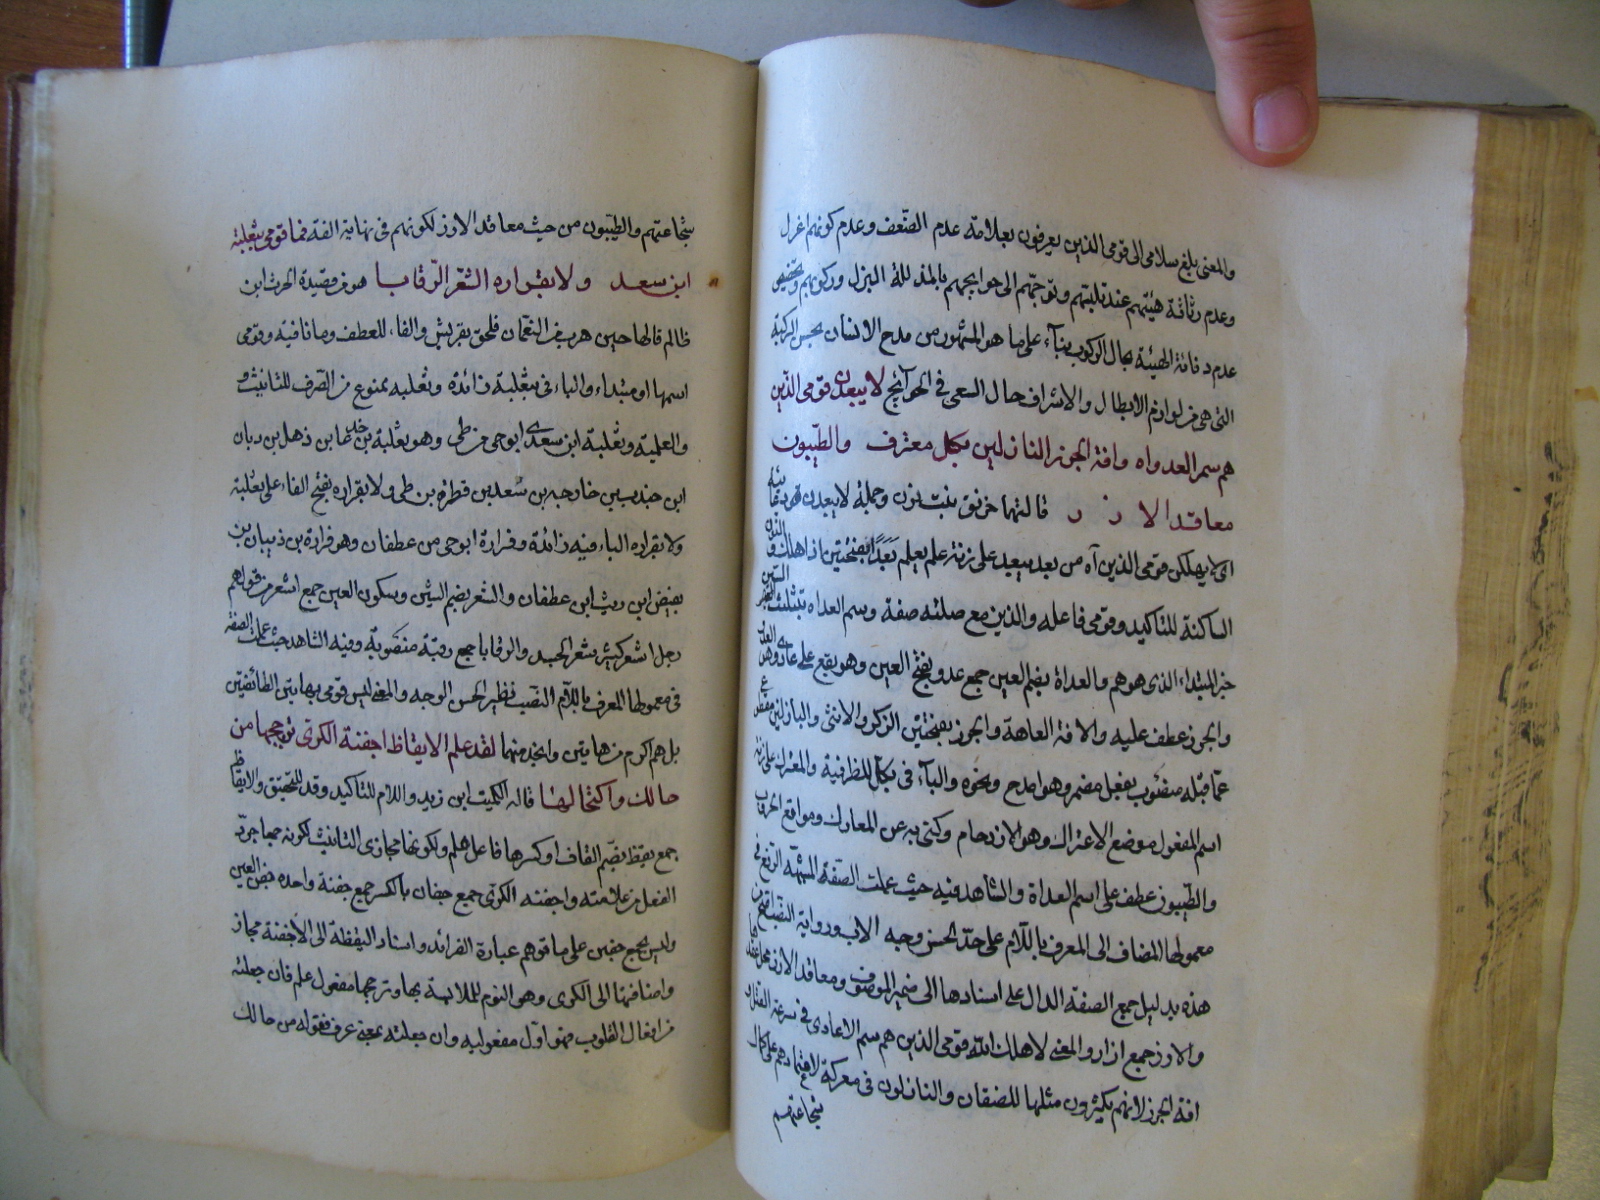 والمعنى بلغ سلامى الى قومى الذين يعرفون بعلامة عدم الضعف وعدم كونهم اعزل
وعدم رثاثة هيئتهم عند تلبتهم وتوجههم الى حوايجهم بالمذللة البزل وركونهم
عدم دفاتة الهيئة بحال الركوب بناء على ما هو المشهور من مدح الانسان بحسن الركبة
التى هى من لوازم الابطال والاشراف حال السعى فى الحوآئج لا يبعدن قومى الذين
هم سم العداه وافة الجزر النازلين بكل معترف والطيبون
معاقد الا ز ر قالتها خرنق بنت وجملة لا يبعدن
اى لا يهلكن قومى الذين آه من بعد يبعد على زنة علم يعلم بعدا بفتحتين اذا هلك والنون
الساكنة للتاكيد وقومى فاعله والذين مع صلته صفة وسم العداه بتثليث السين
خبر المبتداء الذى هو هم والعداة بضم العين جمع عدو بفتح العين وهو يقع على عادى وهو
والجزر عطف عليه والافة العاهة والجزر بفتحتين الذكر والانثى والنازلين
عما قبله منصوب بفعل مضمر وهو امدح ونحوه والبآء فى بكل للظرفية والمعترك على زنة
اسم المفعول موضع الاعتراك وهو الازدحام وكنى به عن المعارك ومواقع الحروب
والطيبون عطف على اسم العداة والشاهد فيه حيث عملت الصفة المشبهة الرفع فى
معمولها المضاف الى المعرف باللام على حد الحسن وجه الاب ورواية النصب
هذه بدليل جمع الصفة الدال على اسنادها الى ضمير الموصوف ومعاقد الازر محل عقدها
والازر جمع ازار والمعنى لا اهلك الله قومى الذين هم سم الاعادى فى سرعة القتل و
افة الجزر لانهم يكثرون مثلها للضيفان والنازلون فى معركة لاعتمادهم على كمال
شجاعتهم
شجاعتهم والطيبون من حيث معاقد الازر لكونهم فى نهاية الفة فما قومى بثعلبة
ابن سعد ولا بفزاره الشعر الرقابا هو من قصيدة الحرث ابن
ظالم قالها حين هرب من النعمان فلحق بقريش والفاء للعطف وما نافية وقومى
اسمها او مبتداء والباء فى بثعلبة زائدة وثعلبه ممنوع من الصرف للتانيث و
والعلمية وثعلبة ابن سعدى ابو حى من طى وهو ثعلبة بن جدعا بن ذهل بن رمان
ابن جندب بن خارجه بن سعد بن فطره بن طى ولا بفزاره بفتح الفاء على بثعلبة
ولا بفزاره الباء فيه زائدة وفزارة ابو حى من غطفان وهو فزارة بن ذبيان بن
بغيض ابن ريث ابن غطفان والشعر بضم الشين وسكون العين جمع اشعر من قولهم
رجل اشعر كثير شعر الجسد والرقابا جمع رقبة منصوبة وفيه الشاهد حيث عملت الصفة
فى معمولها المعرف باللام النصب نظير الحسن الوجه والمعنى ليس قومى بهاتين الطائفتين
بل هم اكرم من هاتين وانجد منهما لقد علم الايقاظ اجفنة الكرى تزججها من
حالك واكتحالها قاله الكميت ابن زيد واللام للتاكيد وقد للتحقيق والايقاظ
جمع يقظ بضم القاف او كسرها فاعل علم ولكونها مجازى التانيث لكونه جمعا جرد
الفعل من علامته واجفنه الكرى جمع جفان بالكسر جمع جفنة واحده جفن العين
وليس بجمع جفين على ما توهم عبارة الفرائد واسناد اليقظة الى الاجفنة مجاز
واضافتها الى الكرى وهو النوم للملابسة بها وتزججها مفعول علم فان جعلته
من افعال القلوب فهو اول مفعوليه وان جعلته بمعنى عرف فقوله من حالك